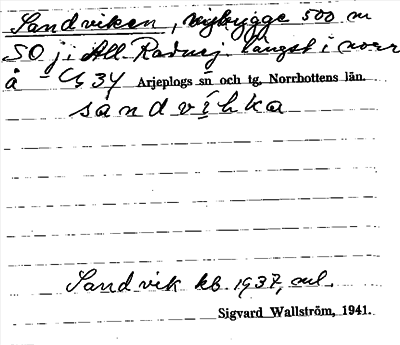 Sandviken, nybygge 500 m
SO j. All. Radnej. längst i norr
å - C 34 Arjeplogs sn och tg, Norrbottens län.
sandvíhka
Sandvik kb. 1937, anl.
Sigvard Wallström, 1941.